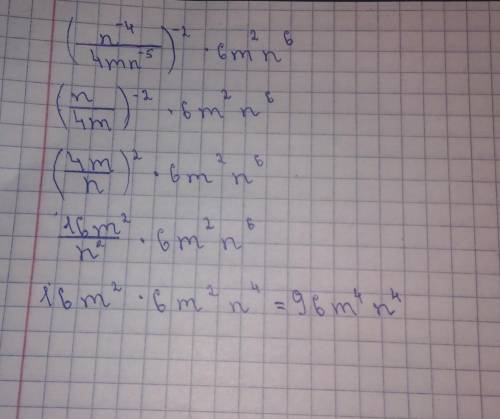 (n⁻⁴/4mn⁻⁵)⁻² · 6m²n⁶
(n/4m)⁻² · 6m²n⁶
(4m/n)² · 6m²n⁶
16m²/n² · 6m²n⁶
16m² · 6m²n⁴ = 96m⁴n⁴